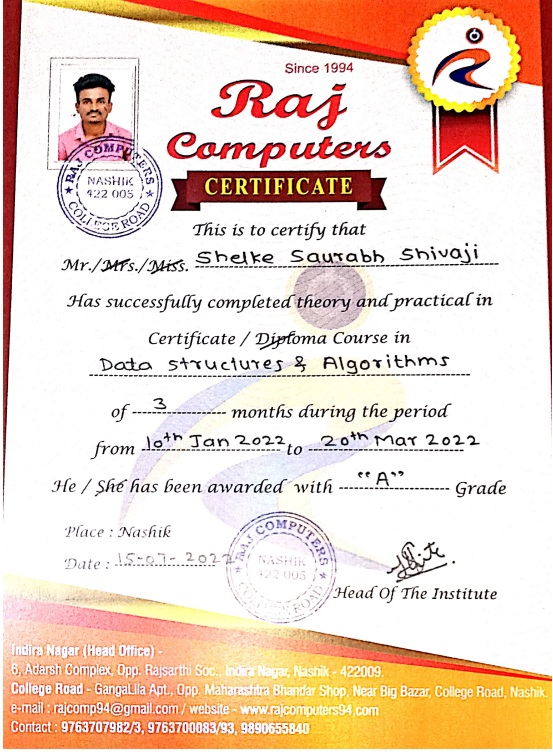 Since 1994
Raj
Computers
CERTIFICATE
RAJ COMPUTERS
NASHIK
422 005
COLLEGE ROAD
This is to certify that
Mr./Mrs./Miss. Shelke Saurabh Shivaji
Has successfully completed theory and practical in
Certificate / Diploma Course in
Data structures & Algorithms
of 3 months during the period
from 10th Jan 2022 to 20th Mar 2022
He / She has been awarded with "A" Grade
Place : Nashik
Date : 15-07-2022
RAJ COMPUTERS
NASHIK
422 005
COLLEGE ROAD
Head Of The Institute
Indira Nagar (Head Office) -
6, Adarsh Complex, Opp. Rajsarthi Soc., Indira Nagar, Nashik - 422009.
College Road - GangaLila Apt., Opp. Maharashtra Bhandar Shop, Near Big Bazar, College Road, Nashik.
e-mail : rajcomp94@gmail.com / website - www.rajcomputers94.com
Contact : 9763707982/3, 9763700083/93, 9890655840